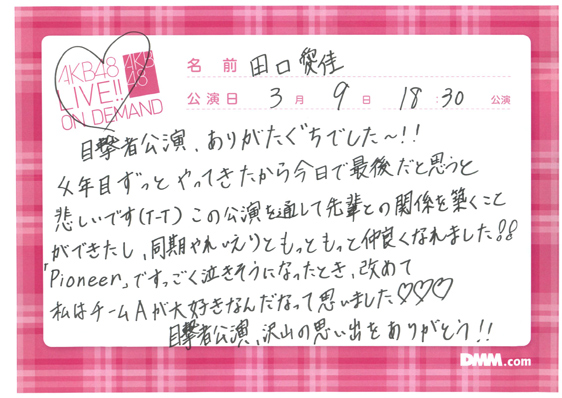 AKB48
LIVE!!
ON DEMAND
AKB
48
名前 田口愛佳
公演日 3月9日 18:30 公演
目撃者公演、ありがたぐちでした〜!!
4年目ずっとやってきたから今日で最後だと思うと
悲しいです(T-T) この公演を通して先輩との関係を築くこと
ができたし、同期やれいえりともっともっと仲良くなれました!!
「Pioneer」ですっごく泣きそうになったとき、改めて
私はチームAが大好きなんだなって思いました♡♡♡
目撃者公演、沢山の思い出をありがとう!!
DMM.com